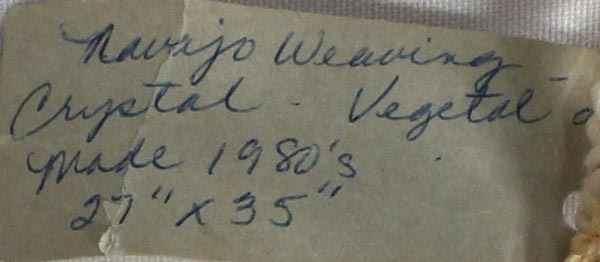 Navajo Weaving -
Crystal - Vegetal -
Made 1980's
27" x 35"